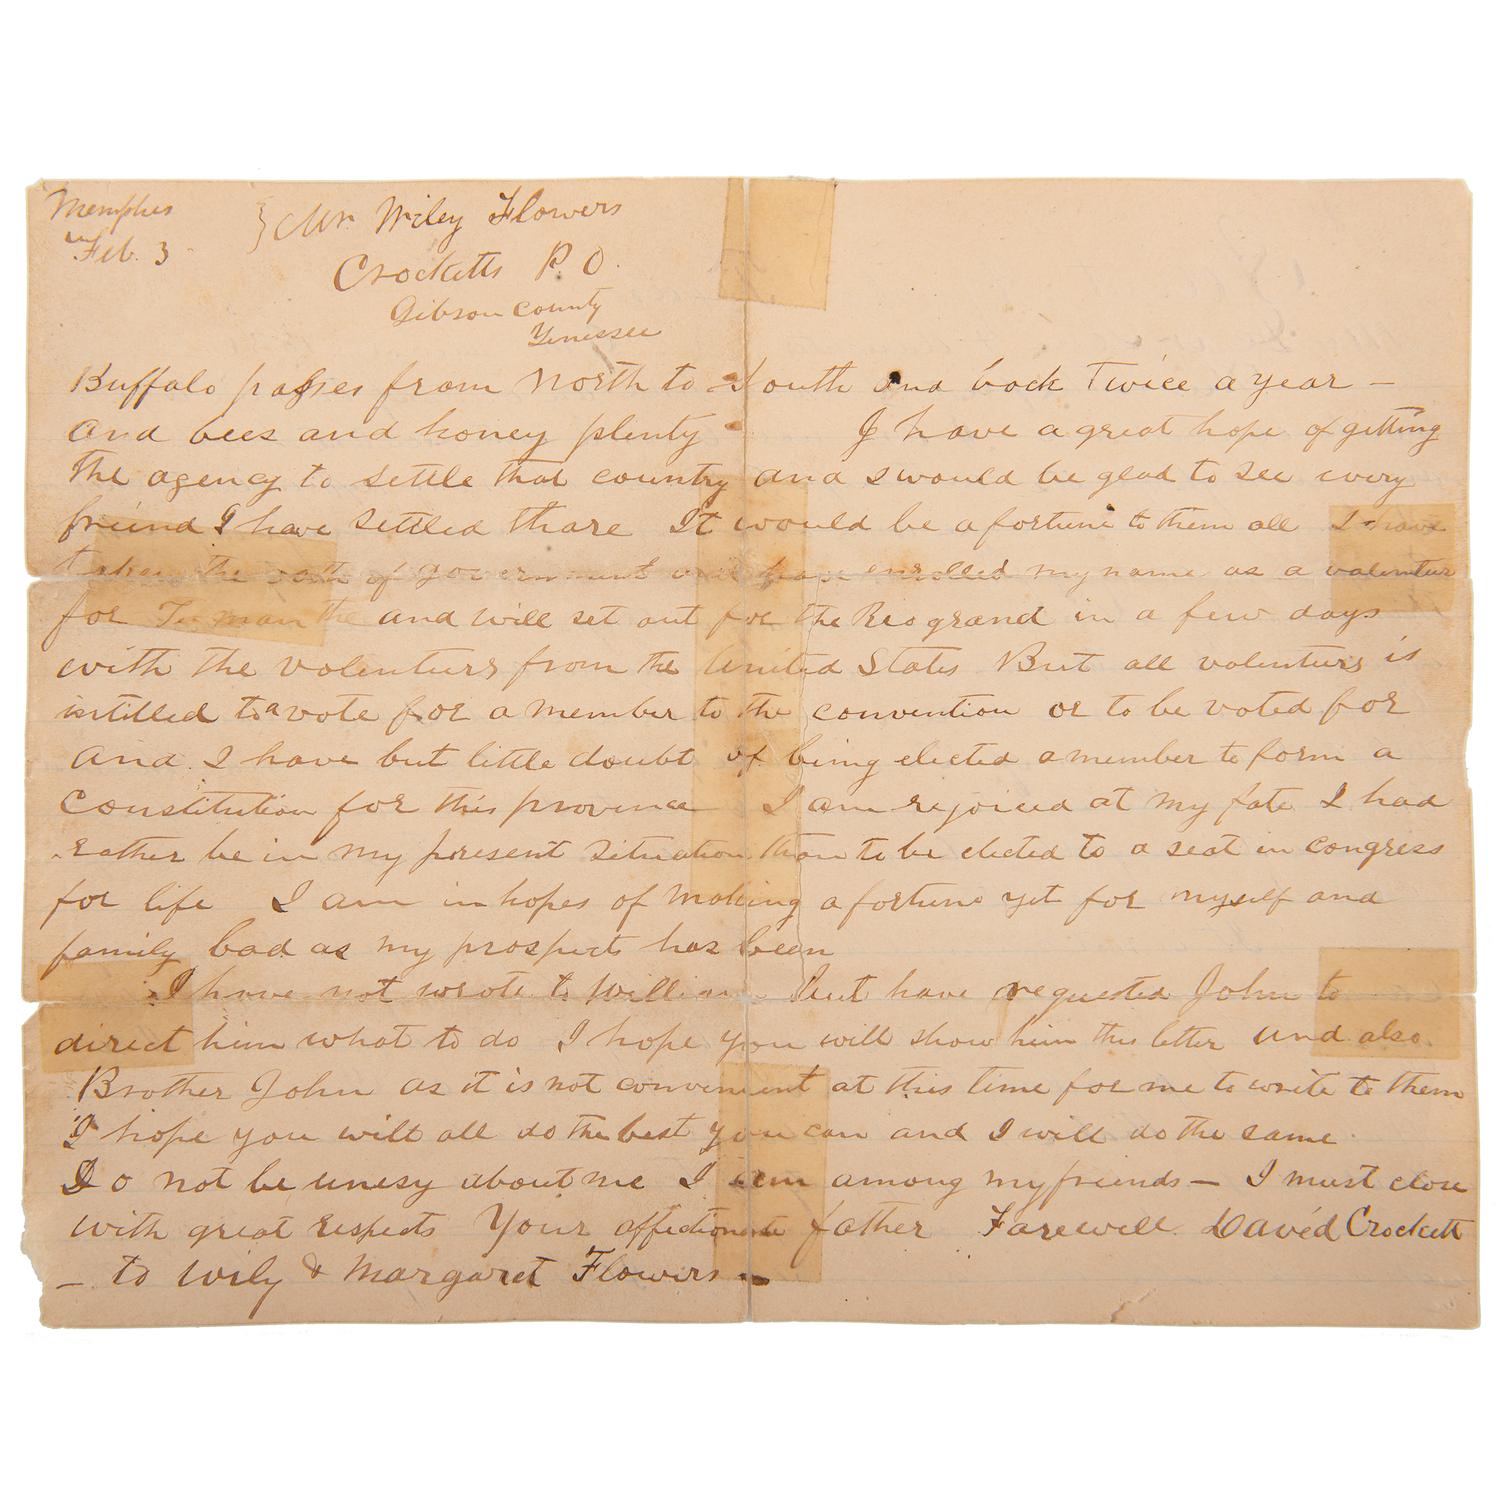 Memphis
Feb. 3
} Mr Wiley Flowers
Crocketts P. O.
Gibson County
Tenessee
Buffalo passes from North to South and back Twice a year —
and bees and honey plenty I have a great hope of getting
the agency to settle that country and I would be glad to see every
friend I have settled thare It would be a fortune to them all I have
taken the oath of government and have enrolled my name as a volenteer
for and will set out for the Reo grand in a few days
with the volenteers from the United States But all volenteers is
intitled to a vote for a member to the convention or to be voted for
and I have but little doubt of being elected a member to form a
Constitution for this province I am rejoiced at my fate I had
rather be in my present situation than to be elected to a seat in congress
for life I am in hopes of making a fortune yet for myself and
family bad as my prospects has been
I have not wrote to William But have requested John to
direct him what to do I hope you will show him this letter and also
Brother John as it is not convenient at this time for me to write to them
I hope you will all do the best you can and I will do the same
Do not be unesy about me I am among my friends — I must close
with great respects Your affectionate father Farewell David Crockett
— to Wily & Margaret Flowers —